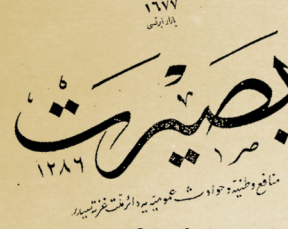 ١٦٧٧
بازار ايرتسى
بصيرت
١٢٨٦
منافع وطنيه و حوادث عموميه يه دائر ملت غزته سيدر